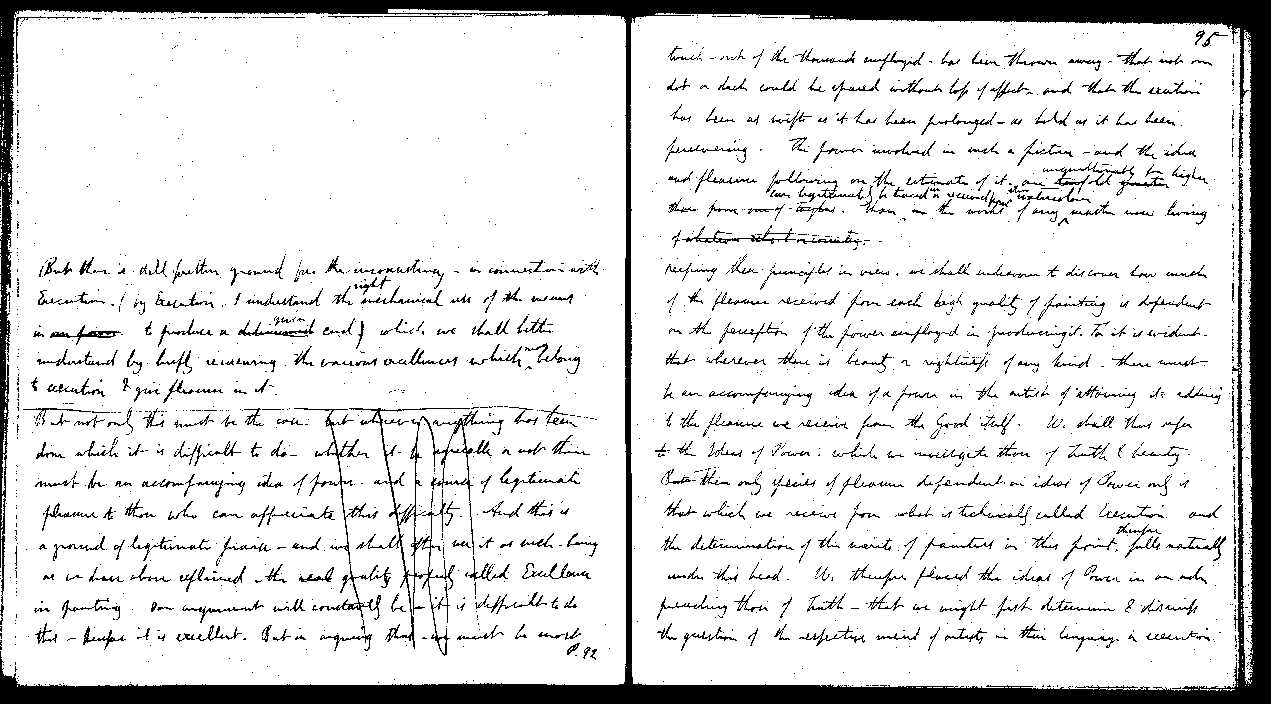 But there is still further ground for the inconsistency – in connection with
Execution. (by Execution. I understand the right mechanical use of the means
in our power to produce a determined given end) which we shall better
understand by briefly reviewing the various excellences which may belong
to execution & give pleasure in it.
But not only this must be the case. but wherever anything has been
done which it is difficult to do – whether it be agreeable or not there
must be an accompanying idea of power. and a source of legitimate
pleasure to those who can appreciate this difficulty. And this is
a ground of legitimate praise – and we shall often use it as such – being
as we have above explained – the real quality properly called Excellence
in painting. Our argument will constantly be – it is difficult to do
this – therefore it is excellent. But in arguing thus – we must be most
P. 92
95
touch – out of the thousands employed – has been thrown away – that not one
dot or dash could be spared without loss of effect – and that the execution
has been as swift as it has been prolonged – as bold as it has been
persevering. The power involved in such a picture – and the idea
and pleasure following on the estimate of it – are tenfold greater unquestionably far higher
than can legitimately be traced in the works of any master now living
of whatever school or country.
Keeping these principles in view. we shall endeavour to discover how much
of the pleasure received from each high quality of painting is dependent
on the perception of the power employed in producing it. For it is evident
that wherever there is beauty or rightness of any kind – there must
be an accompanying idea of a power in the artist of attaining it – adding
to the pleasure we receive from the Good itself. We shall thus refer
to the Ideas of Power. which we investigate those of Truth & beauty.
But the only species of pleasure dependent on ideas of Power only is
that which we receive from what is technically called Execution. and
the determination of the merits of painters in this point. therefore falls naturally
under this head. We therefore placed the ideas of Power in our order
preceding those of Truth – that we might first determine & dismiss
the question of the respective merit of artists in their language or execution.